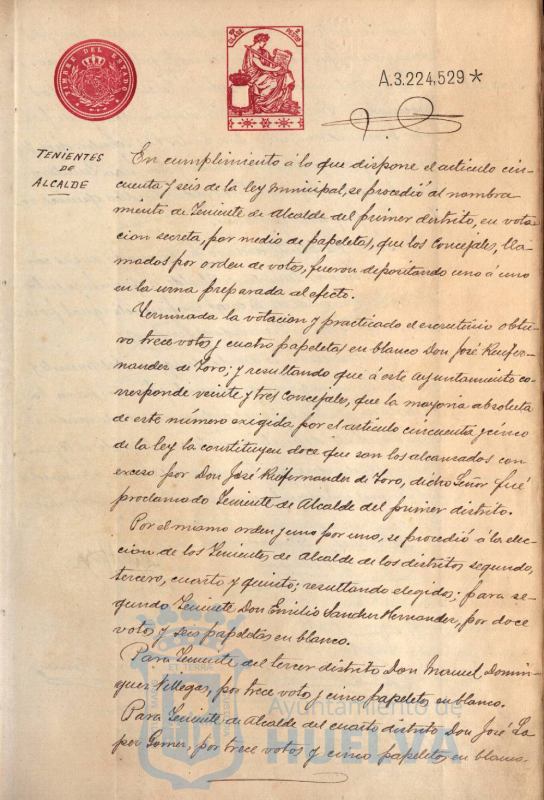 TIMBRE DEL ESTADO
A.3.224,529*
TENIENTES
DE
ALCALDE
En cumplimiento á lo que dispone el artículo cin-
cuenta y seis de la ley municipal, se procedió al nombra
miento de Teniente de Alcalde del primer distrito, en vota-
cion secreta, por medio de papeletas, que los Concejales, lla-
mados por orden de votos, fueron depositando uno á uno
en la urna preparada al efecto.
Terminada la votacion y practicado el escrutinio obtu-
vo trece votos y cuatro papeletas en blanco Don José Ruifer-
nandez de Toro; y resultando que á este Ayuntamiento co-
rresponde veinte y tres Concejales, que la mayoria absoluta
de este número exigida por el articulo cincuenta y cinco
de la ley la constituyen doce que son los alcanzados con
exceso por Don José Ruifernandez de Toro, dicho Señor fué
proclamado Teniente de Alcalde del primer distrito.
Por el mismo orden y uno por uno, se procedió á la elec-
cion de los Tenientes de Alcalde de los distritos segundo,
tercero, cuarto y quinto; resultando elegidos: para se-
gundo Teniente Don Emilio Sanchez Hernandez, por doce
votos y seis papeletas en blanco.
Para Teniente del tercer distrito Don Manuel Domin-
guez Villegas, por trece votos y cinco papeletas en blanco.
Para Teniente de Alcalde del cuarto distrito Don José Lo
pez Gomez, por trece votos y cinco papeletas en blanco.
Ayuntamiento de
HUELVA